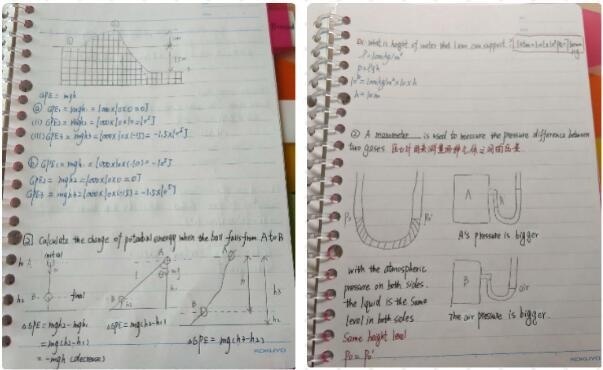 GPE = mgh
(i) GPE1 = mgh1 = 1000×10×0 = 0J
(ii) GPE2 = mgh2 = 1000×10×10 = 10⁵J
(iii) GPE3 = mgh3 = 1000×10×(-15) = -1.5×10⁵J
GPE1 = mgh1 = 1000×10×(-10) = -10⁵J
GPE2 = mgh2 = 1000×10×0 = 0J
GPE3 = mgh3 = 1000×10×
Calculate the change of potential energy when the ball falls from A to B
initial
A
B
final
h2
A
mg
B
h2
A
B
h
h3
h2
△GPE = mgh2 - mgh1
= mg(h2-h1)
= -mgh (decrease)
△GPE = mg(h2-h1)
△GPE = mg(h3-h2)
KOKUYO
Ex. what is height of water that 1 atm can support?
1 atm =
ρ = 1000kg/m³
p = ρgh
10⁵ = 1000kg/m³ × 10 × h
h = 10m
② A manometer is used to measure the pressure difference between
two gases.
P0
P0'
A
A's pressure is bigger
with the atmospheric
pressure on both sides.
the liquid is the same
level in both sides.
Same height level
P0 = P0'
B
air
The air pressure is bigger.
KOKUYO